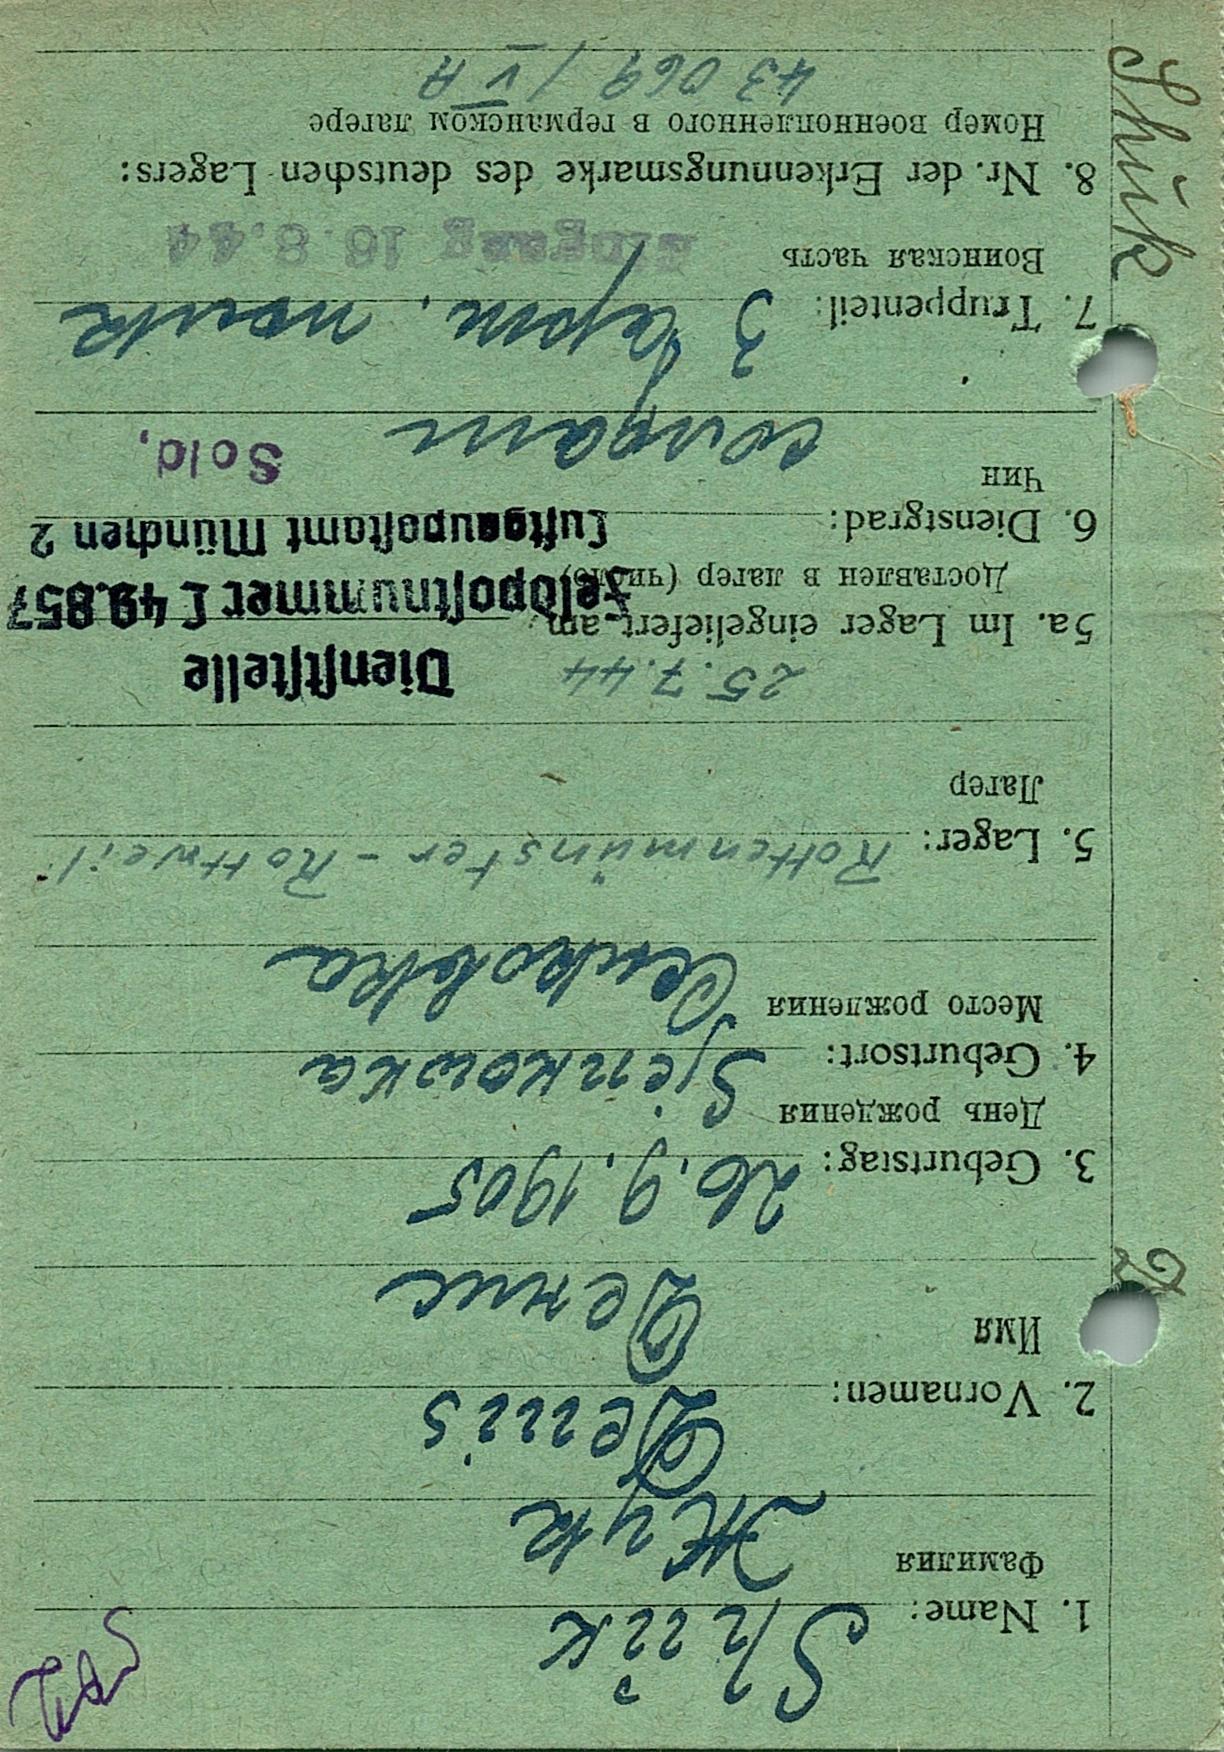 1. Name: Shŭk
Фамилия Жук
2. Vornamen: Denis
Имя Денис
3. Geburtstag: 26.9.1905
День рождения
4. Geburtsort: Sjenkowka
Место рождения Сенковка
5. Lager: Rottenmünster - Rottweil
Лагер
5a. Im Lager eingeliefert am 25.7.44
Доставлен в лагер (число)
Dienststelle
Feldpostnummer L 49.857
Luftgaupostamt München 2
6. Dienstgrad: солдат
Чин
Sold,
7. Truppenteil: 3 арт. полк
Воинская часть
Eingang 16.8.44
8. Nr. der Erkennungsmarke des deutschen Lagers:
Номер военнопленного в германском лагере
43 069 / V A
Shŭk